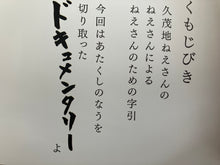 くもじびき
久茂地ねえさんの
ねえさんによる
ねえさんのための字引
今回はあたくしのなうを
切り取った
ドキュメンタリーよ